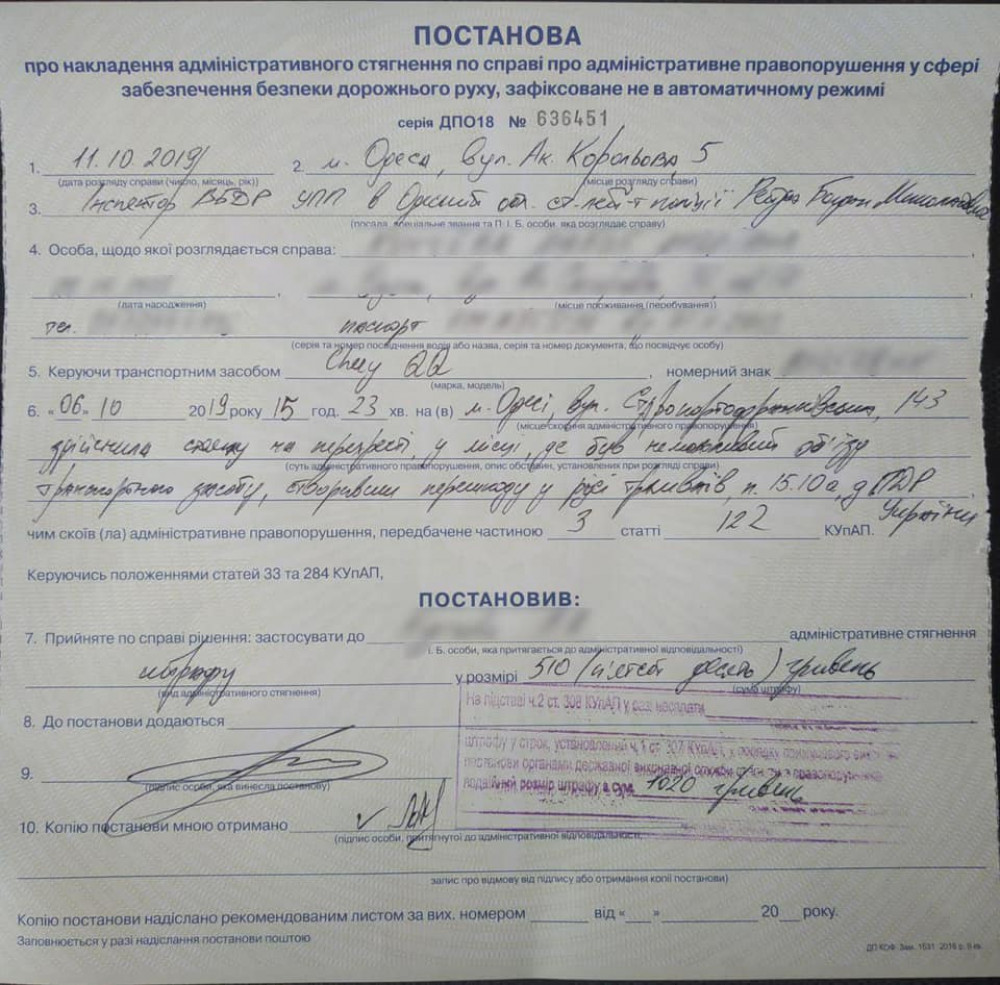 ПОСТАНОВА
про накладення адміністративного стягнення по справі про адміністративне правопорушення у сфері
забезпечення безпеки дорожнього руху, зафіксоване не в автоматичному режимі
серія ДПО18 № 636451
1. 11.10.2019 2. м. Одеса, вул. Ак. Корольова, 5
(дата розгляду справи (число, місяць, рік)) (місце розгляду справи)
3. Інспектор ВБДР УПП в Одеській обл. ст. лей-т поліції
(посада, спеціальне звання та П. І. Б. особи, яка розглядає справу)
4. Особа, щодо якої розглядається справа:
(дата народження) (місце проживання (перебування))
тел. паспорт
(серія та номер посвідчення водія або назва, серія та номер документа, що посвідчує особу)
5. Керуючи транспортним засобом Chery QQ, номерний знак
(марка, модель)
6. "06" 10 2019 року 15 год. 23 хв. на (в) м. Одесі, вул. 143
(місце скоєння адміністративного правопорушення)
здійснила стоянку на перехресті, у місці, де був неможливий об'їзд
(суть адміністративного правопорушення, опис обставин, установлених при розгляді справи)
транспортного засобу, створивши перешкоду у русі п. 15.10 а, д ПДР
України
чим скоїв (ла) адміністративне правопорушення, передбачене частиною 3 статті 122 КУпАП.
Керуючись положеннями статей 33 та 284 КУпАП,
ПОСТАНОВИВ:
7. Прийняте по справі рішення: застосувати до адміністративне стягнення
І. Б. особи, яка притягається до адміністративної відповідальності)
штрафу у розмірі 510 (п'ятсот десять) гривень
(вид адміністративного стягнення) (сума штрафу)
На підставі ч.2 ст. 308 КУпАП у разі несплати
8. До постанови додаються
штрафу у строк, установлений ч.1 ст. 307 КУпАП, у порядку примусового
постанови органами державної виконавчої служби з правопорушника
9.
(підпис особи, яка винесла постанову)
подвійний розмір штрафу в сумі 1020 гривень
10. Копію постанови мною отримано
(підпис особи, притягнутої до адміністративної відповідальності,
запис про відмову від підпису або отримання копії постанови)
Копію постанови надіслано рекомендованим листом за вих. номером від « » 20 року.
Заповнюється у разі надіслання постанови поштою